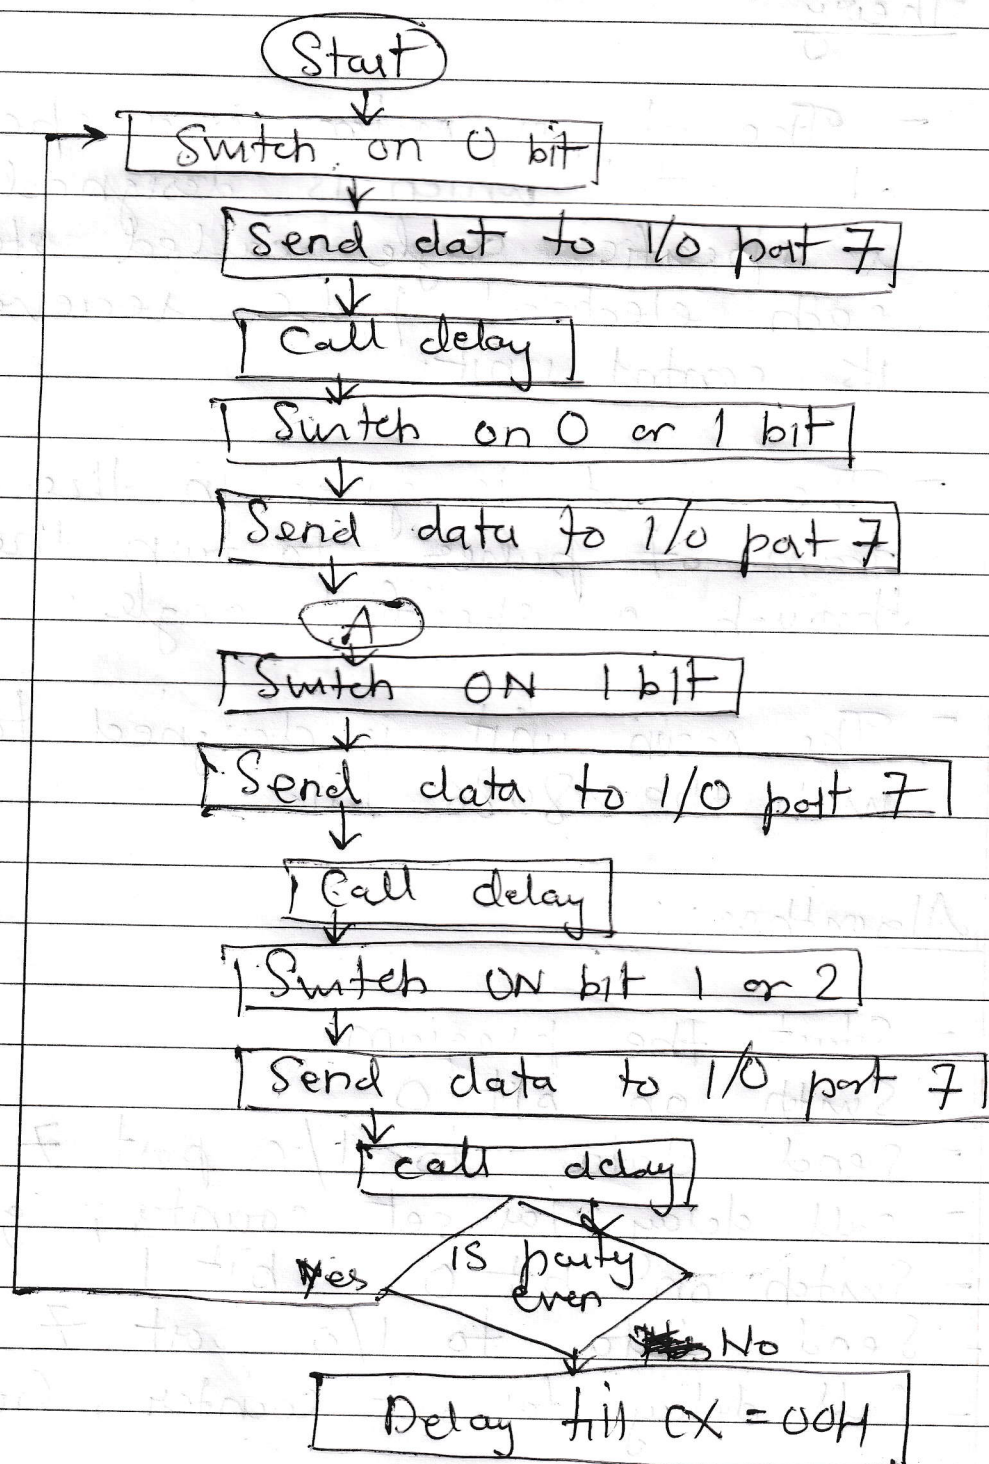 Start
Switch on 0 bit
Send dat to I/O port 7
Call delay
Switch on 0 or 1 bit
Send data to I/O pot 7
A
Switch ON 1 bit
Send data to I/O port 7
Call delay
Switch ON bit 1 or 2
Send data to I/O port 7
call delay
IS parity
even
Yes
No
Delay till CX = 00H